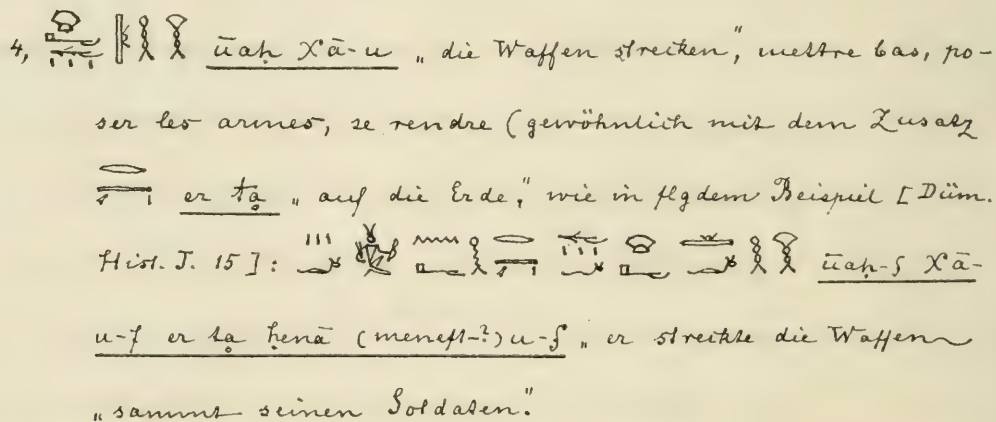 4, ūaḥ Χā-u „die Waffen strecken", mettre bas, po-
ser les armes, se rendre (gewöhnlich mit dem Zusatz
er ta̱ „auf die Erde", wie in flgdem Beispiel [Düm.
Hist. J. 15]: ūaḥ-f Χā-
u-f er ta̱ ḥenā (meneft-?)u-f „er streckte die Waffen
„sammt seinen Soldaten".